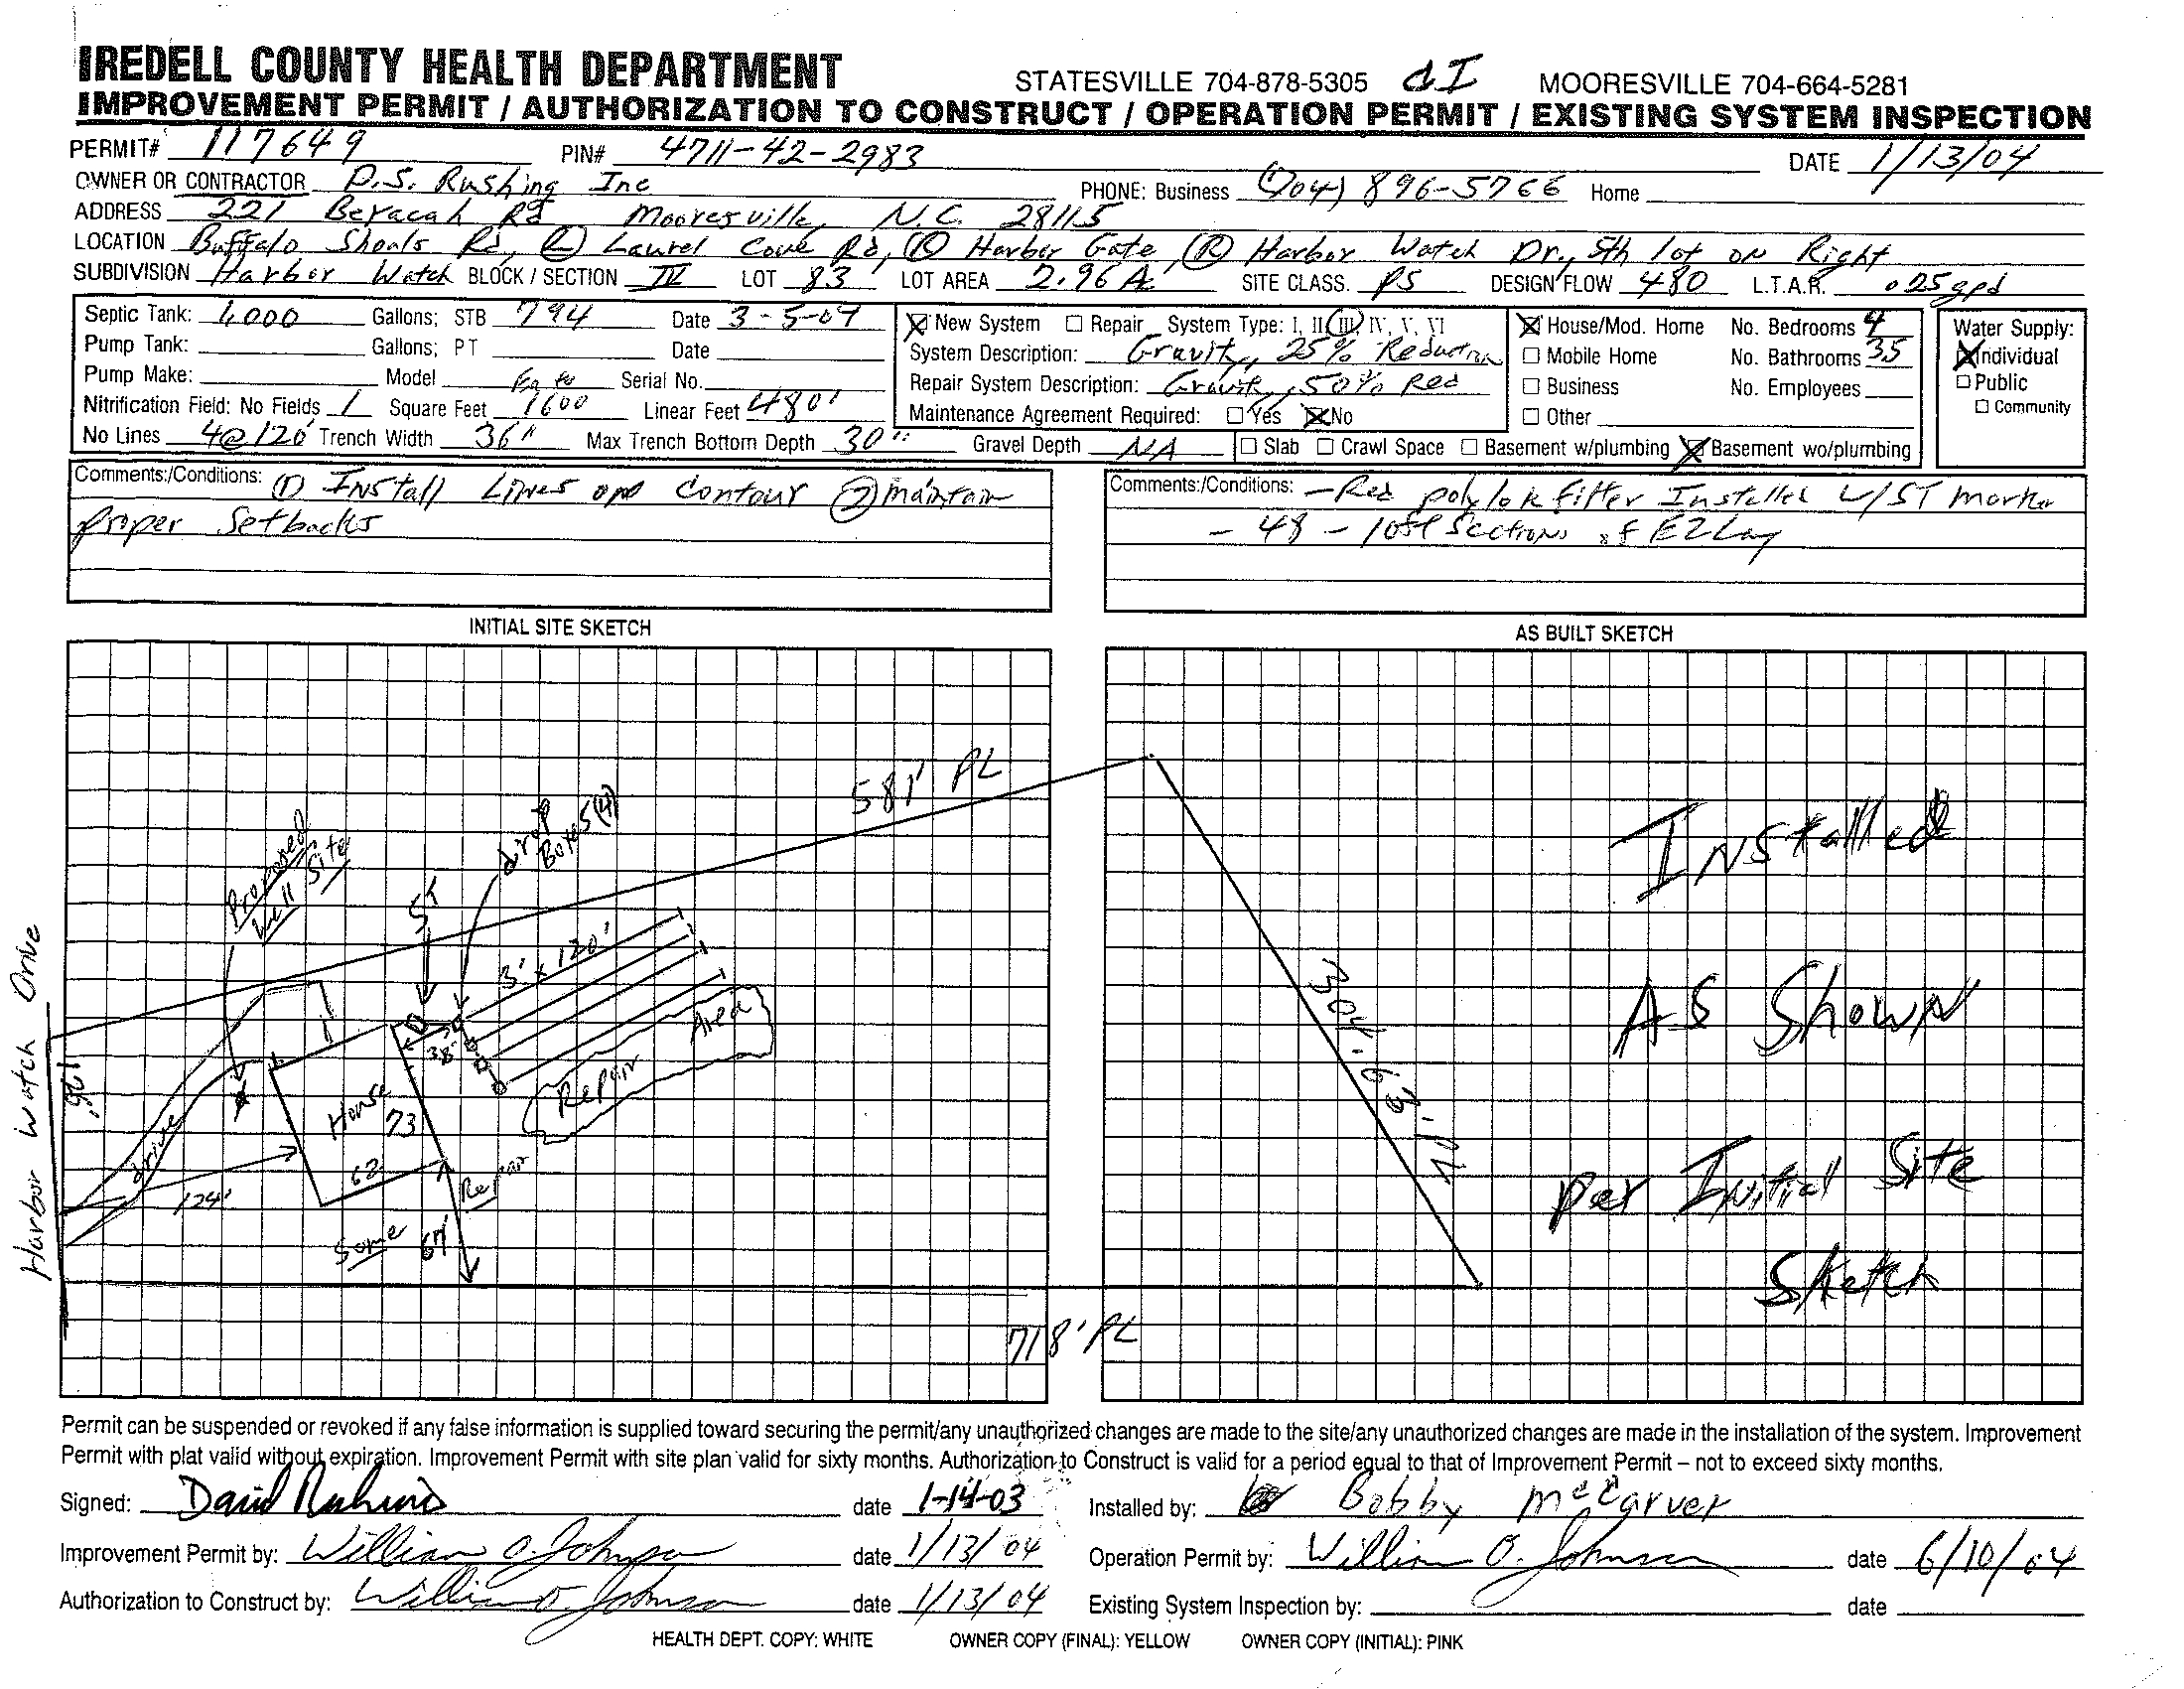 IREDELL COUNTY HEALTH DEPARTMENT
STATESVILLE 704-878-5305 MOORESVILLE 704-664-5281
IMPROVEMENT PERMIT / AUTHORIZATION TO CONSTRUCT / OPERATION PERMIT / EXISTING SYSTEM INSPECTION
PERMIT# 117649 PIN# 4711-42-2983 DATE 1/13/04
OWNER OR CONTRACTOR D.S. Rushing Inc PHONE: Business (704) 896-5766 Home
ADDRESS 221 Beracah Rd Mooresville, N.C. 28115
LOCATION Buffalo Shoals Rd, (L) Laurel Cove Rd, (R) Harbor Gate, (R) Harbor Watch Dr., 5th lot on Right
SUBDIVISION Harbor Watch BLOCK / SECTION IV LOT 83 LOT AREA 2.96 Ac SITE CLASS. PS DESIGN FLOW 480 L.T.A.R. .025gpd
Septic Tank: 1,000 Gallons; STB 794 Date 3-5-04
Pump Tank: Gallons; PT Date
Pump Make: Model Serial No.
Nitrification Field: No Fields 1 Square Feet Eq to 1600 Linear Feet 480'
No Lines 4@120' Trench Width 36" Max Trench Bottom Depth 30" Gravel Depth NA
New System Repair System Type: I, II, III, IV, V, VI
System Description: Gravity, 25% Reduction
Repair System Description: Gravity, 50% Red
Maintenance Agreement Required: Yes No
House/Mod. Home No. Bedrooms 4
Mobile Home No. Bathrooms 3.5
Business No. Employees
Other
Slab Crawl Space Basement w/plumbing Basement wo/plumbing
Water Supply:
Individual
Public
Community
Comments:/Conditions: (1) Install Lines on contour (2) maintain
proper Setbacks
Comments:/Conditions: - Red polylok filter Installed w/ST marker
- 48 - 10ft Sections of EZ Lay
INITIAL SITE SKETCH
AS BUILT SKETCH
581' PL
Proposed
Well Site
ST
drop
Boxes (4)
3' x 120'
38'
Repair Area
House
73
62
drive
124'
Harbor Watch Drive
196'
Some
Repair
67'
718' PL
304.63' PL
Installed
As Shown
per Initial Site
Sketch
Permit can be suspended or revoked if any false information is supplied toward securing the permit/any unauthorized changes are made to the site/any unauthorized changes are made in the installation of the system. Improvement
Permit with plat valid without expiration. Improvement Permit with site plan valid for sixty months. Authorization to Construct is valid for a period equal to that of Improvement Permit – not to exceed sixty months.
Signed: David date 1-14-03 Installed by: Bobby McCarver
Improvement Permit by: William O. Johnson date 1/13/04 Operation Permit by: William O. Johnson date 6/10/04
Authorization to Construct by: William O. Johnson date 1/13/04 Existing System Inspection by: date
HEALTH DEPT. COPY: WHITE OWNER COPY (FINAL): YELLOW OWNER COPY (INITIAL): PINK